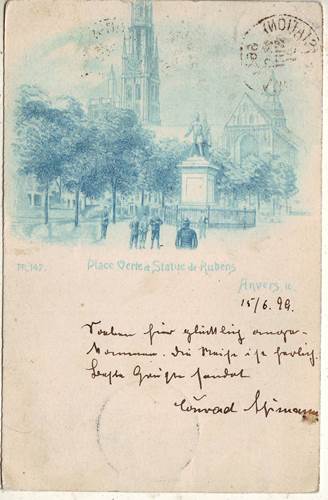 STATION
TR. 147.
Place Verte & Statue de Rubens
Anvers, le
15/6. 99.
Soeben hier glücklich ange-
kommen. Die Reise ist herrlich.
Beste Grüße sendet
Conrad